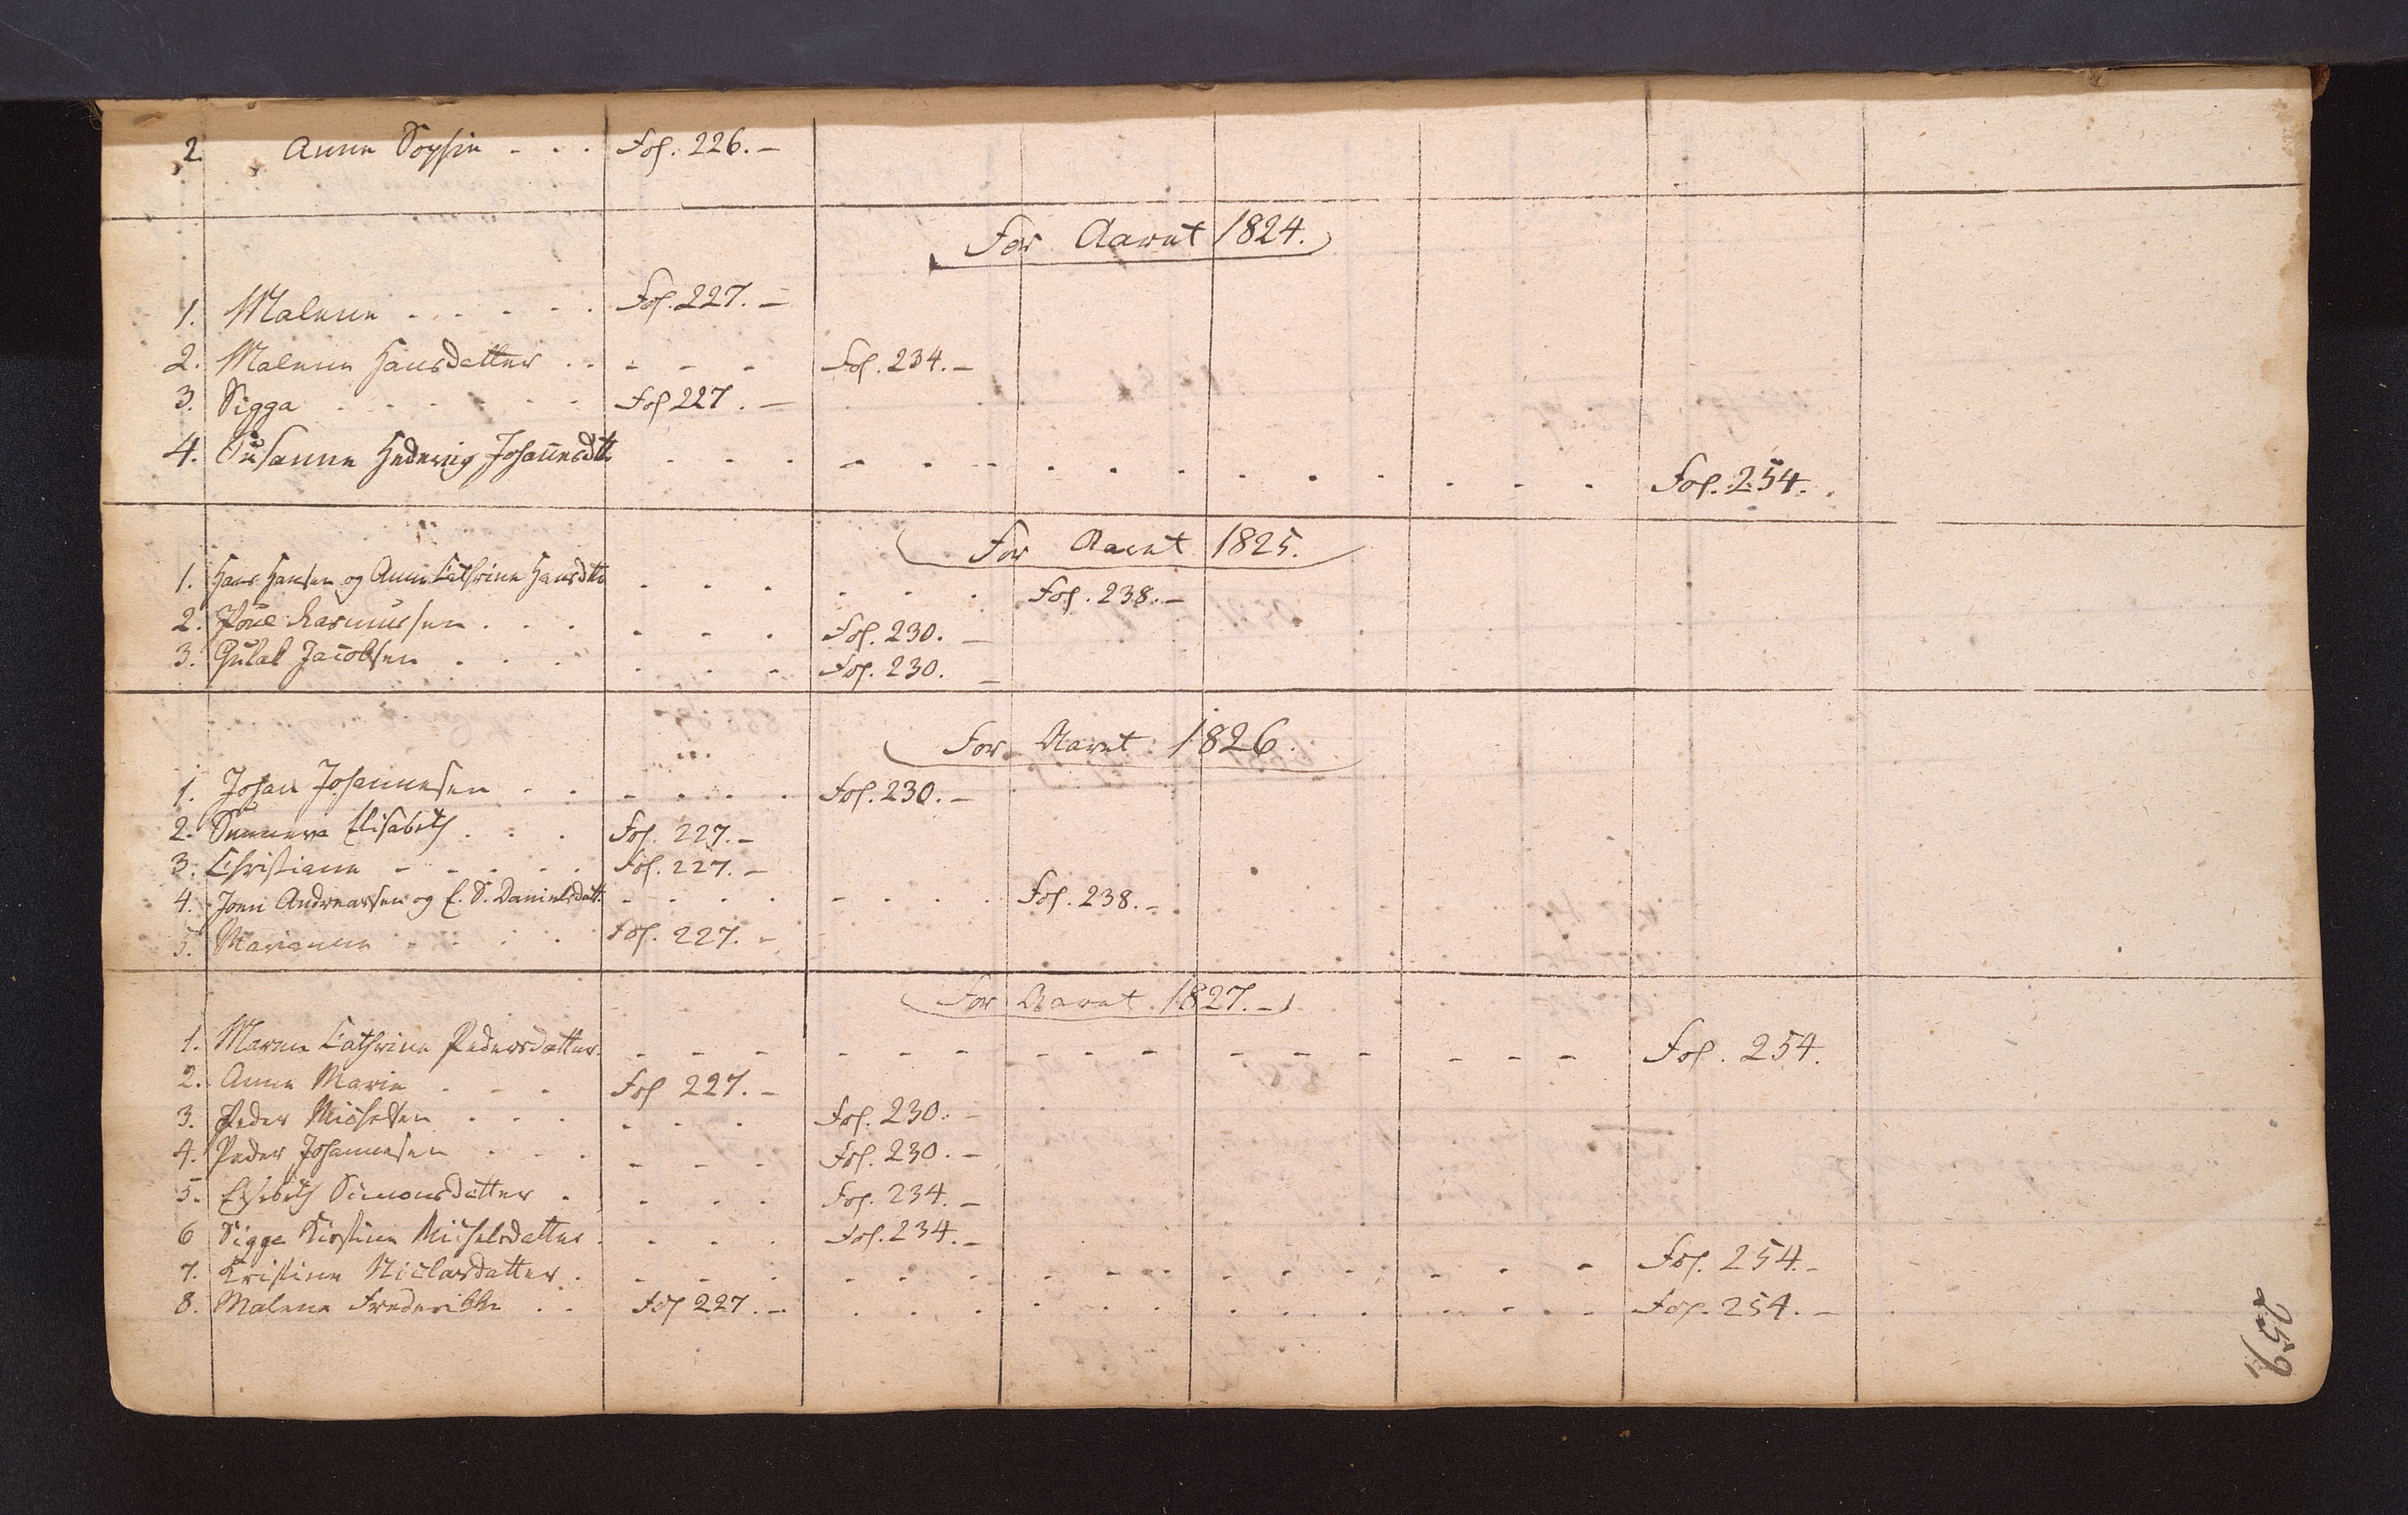 2. Anne Sophie - - . Fol. 226. -
For Aaret 1824.
1. Malene - - - - - Fol. 227. -
2. Malene Hansdatter . . - - - Fol. 234. -
3. Sigga - - - - - Fol 227. -
4. Susanne Hedevig Johannesdtt. - - - - - - Fol. 254.
For Aaret 1825.
1. Hans Hansen og Anne Cathrine Hansdtt. - - - - - - Fol. 238. -
2. Poul Rasmussen . . . - - - Fol. 230. -
3. Gulak Jacobsen . . . - - - Fol. 230. -
For Aaret 1826.
1. Johan Johannesen - - - - - - Fol. 230. -
2. Sunneva Elisabeth . . . Fol. 227. -
3. Christiane - - - - Fol. 227. -
4. Joen Andreassen og E. S. Danielsdatt. - - - - - - Fol. 238. -
5. Marianne - - - - Fol. 227. -
For Aaret 1827. -
1. Maren Cathrine Pedersdatter. - - - - - - Fol. 254.
2. Anne Marie . - - Fol 227. -
3. Peder Michelsen . . . - - - Fol. 230. -
4. Peder Johannesen . . . - - - Fol. 230. -
5. Elsebeth Simonsdatter . - - - Fol. 234. -
6 Sigge Kirstine Michelsdatter . - - - Fol. 234. -
7. Kristine Niclasdatter . - - - - - - Fol. 254. -
8. Malena Frederikke . . Fol 227. - . . . . . . Fol. 254. -
259